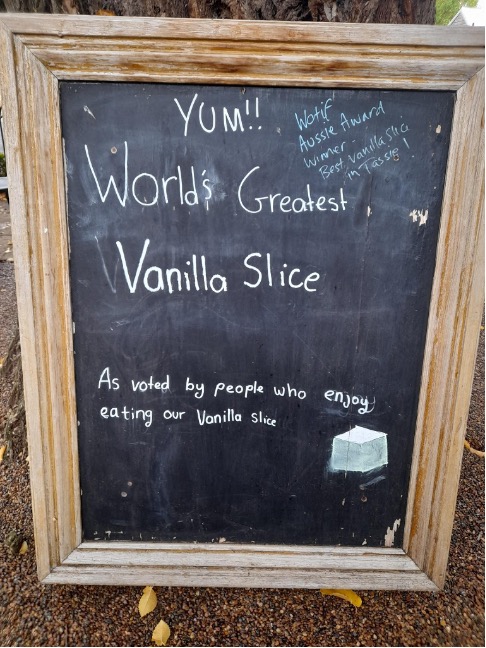 YUM!!
Wotif
Aussie Award
Winner
Best Vanilla Slice
in Tassie!
World's Greatest
Vanilla Slice
As voted by people who enjoy
eating our Vanilla slice